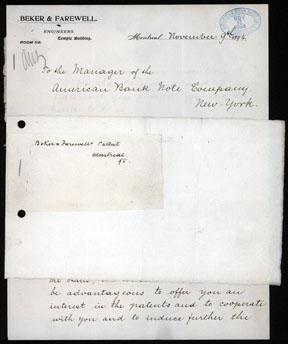 BEKER & FAREWELL.
ENGINEERS
Temple Building.
ROOM 712
Montreal November 9th 1894.
To the Manager of the
American Bank Note Company
New-York.
Beker & Farewell Patent
Montreal
be advantageous to offer you an
interest in the patents and to cooperate
with you and to induce further the